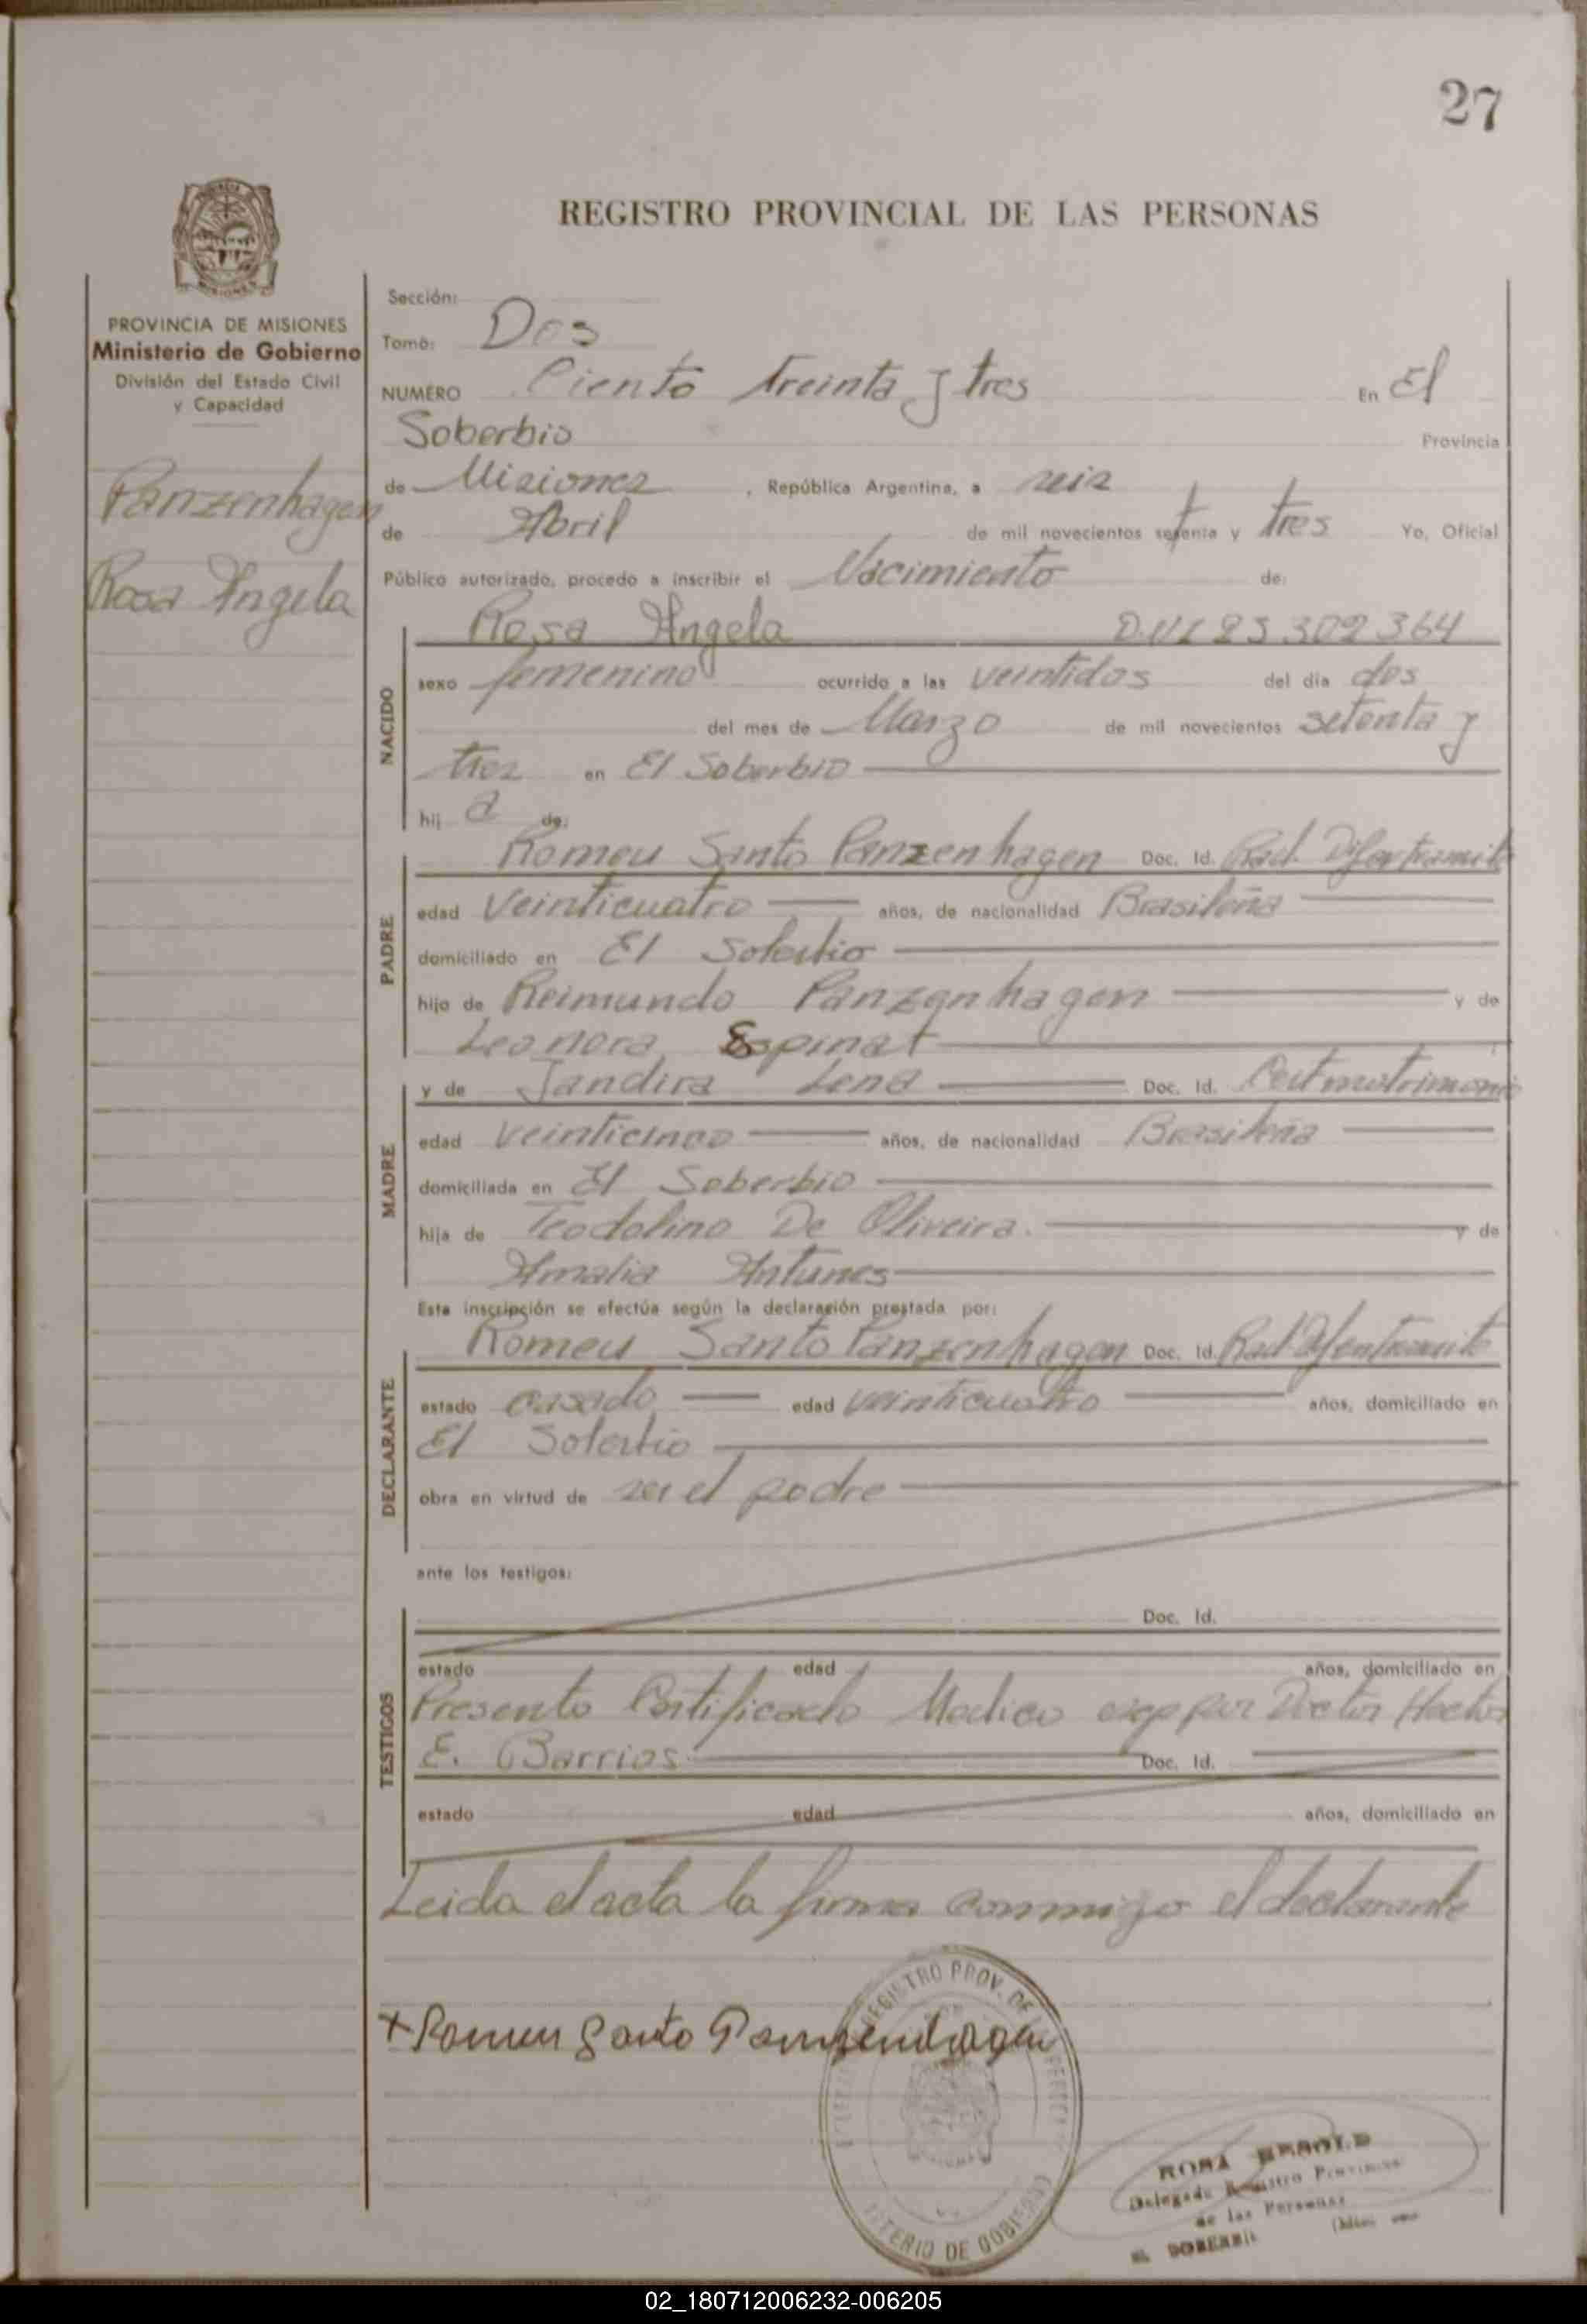 27
REGISTRO PROVINCIAL DE LAS PERSONAS
PROVINCIA DE MISIONES
Ministerio de Gobierno
División del Estado Civil
y Capacidad
Panzenhagen
Rosa Angela
Sección:
Tomo: Dos
NUMERO Ciento treinta y tres En El
Soberbio Provincia
de Misiones, República Argentina, a seis
de Abril de mil novecientos setenta y tres Yo, Oficial
Público autorizado, procedo a inscribir el Nacimiento de:
NACIDO
Rosa Angela 23.302.364
sexo femenino ocurrido a las veintidos del día dos
del mes de Marzo de mil novecientos setenta y
tres en El Soberbio
hij a de:
PADRE
Romeu Santo Panzenhagen Doc. Id. Rad.
edad Veinticuatro años, de nacionalidad Brasileña
domiciliado en El Soberbio
hijo de Reimundo Panzenhagen y de
Leonora Espinat
MADRE
y de Jandira Lena Doc. Id. Cert matrimonio
edad veinticinco años, de nacionalidad Brasileña
domiciliada en El Soberbio
hija de Teodolino De Oliveira. y de
Amalia Antunes
Esta inscripción se efectúa según la declaración prestada por:
DECLARANTE
Romeu Santo Panzenhagen Doc. Id. Rad
estado casado edad veinticuatro años, domiciliado en
El Soberbio
obra en virtud de ser el padre
ante los testigos:
TESTIGOS
Doc. Id.
estado edad años, domiciliado en
Presento Certificado Medico exp por Doctor Hector
E. Barrios Doc. Id.
estado edad años, domiciliado en
Leida el acta la firma conmigo el declarante
+ Romeu Santo Panzenhagen
REGISTRO PROV. DE
MINISTERIO DE GOBIERNO
ROSA
Delegada Registro Provincial
de las Personas
EL SOBERBIO
02_180712006232-006205